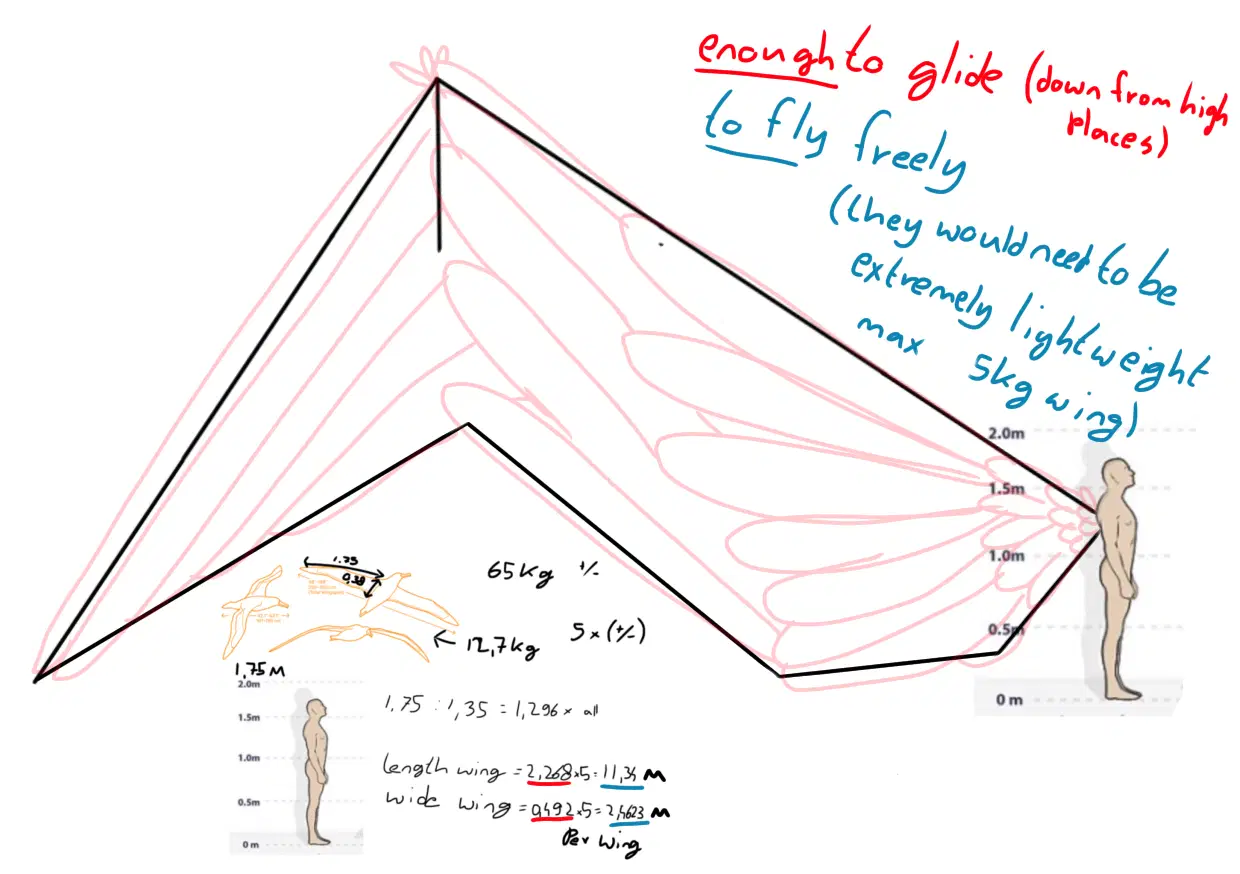 enough to glide (down from high
places)
to fly freely
(they would need to be
extremely lightweight
max 5kg wing)
2.0m
1.5m
1.0m
0.5m
0 m
1.75
0,38
65kg +/-
12,7kg
5x (+/-)
1,75 M
2.0m
1.5m
1.0m
0.5m
0 m
1,75 : 1,35 = 1,296 x all
length wing = 2,268x5= 11,34 M
wide wing = 0,492x5= 2,4623 M
Per wing